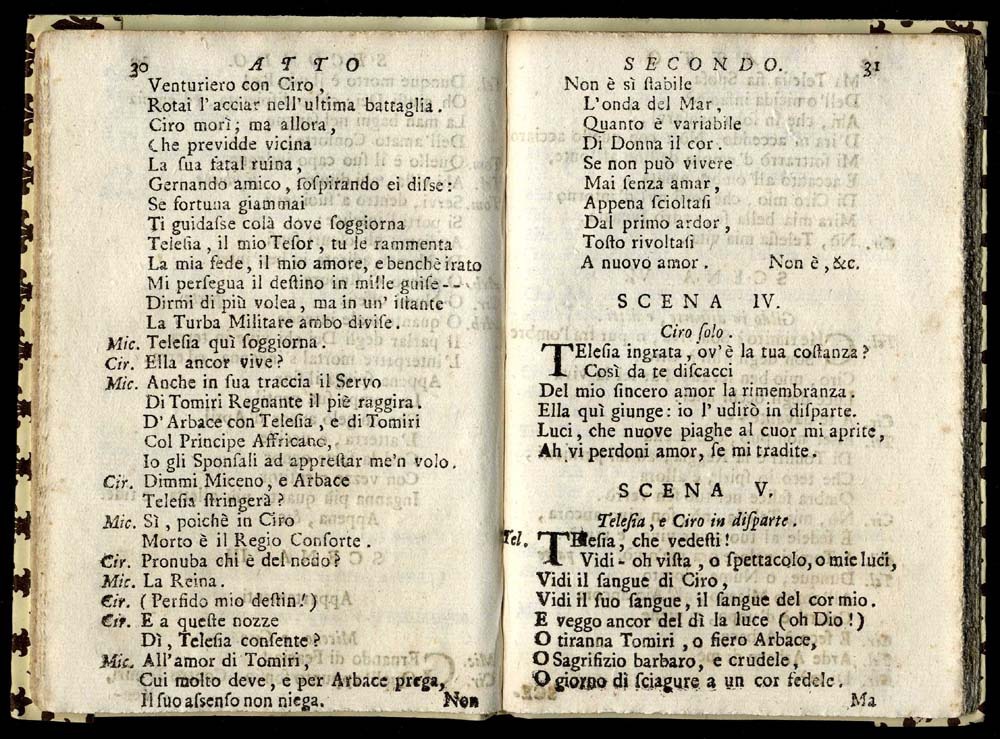 30 ATTO
Venturiero con Ciro,
Rotai l'acciar nell'ultima battaglia.
Ciro morì; ma allora,
Che previdde vicina
La ſua fatal ruina,
Gernando amico, ſoſpirando ei diſse:
Se fortuna giammai
Ti guidaſse colà dove ſoggiorna
Teleſia, il mio Teſor, tu le rammenta
La mia fede, il mio amore, e benchè irato
Mi perſegua il deſtino in mille guiſe--
Dirmi di più volea, ma in un' iſtante
La Turba Militare ambo diviſe.
Mic. Teleſia quì ſoggiorna.
Cir. Ella ancor vive?
Mic. Anche in ſua traccia il Servo
Di Tomiri Regnante il piè raggira.
D'Arbace con Teleſia, e di Tomiri
Col Principe Affricano,
Io gli Sponſali ad appreſtar me'n volo.
Cir. Dimmi Miceno, e Arbace
Teleſia ſtringerà?
Mic. Sì, poichè in Ciro
Morto è il Regio Conſorte.
Cir. Pronuba chi è del nodo?
Mic. La Reina.
Cir. (Perfido mio deſtin!)
Cir. E a queſte nozze
Dì, Teleſia conſente?
Mic. All'amor di Tomiri,
Cui molto deve, e per Arbace prega,
Il ſuo aſsenſo non niega. Non
SECONDO. 31
Non è sì ſtabile
L'onda del Mar,
Quanto è variabile
Di Donna il cor.
Se non può vivere
Mai ſenza amar,
Appena ſcioltaſi
Dal primo ardor,
Toſto rivoltaſi
A nuovo amor. Non è, &c.
SCENA IV.
Ciro ſolo.
TEleſia ingrata, ov'è la tua coſtanza?
Così da te diſcacci
Del mio ſincero amor la rimembranza.
Ella quì giunge: io l'udirò in diſparte.
Luci, che nuove piaghe al cuor mi aprite,
Ah vi perdoni amor, ſe mi tradite.
SCENA V.
Teleſia, e Ciro in diſparte.
Tel. TEleſia, che vedeſti!
Vidi - oh viſta, o ſpettacolo, o mie luci,
Vidi il ſangue di Ciro,
Vidi il ſuo ſangue, il ſangue del cor mio.
E veggo ancor del dì la luce (oh Dio!)
O tiranna Tomiri, o fiero Arbace,
O Sagrifizio barbaro, e crudele,
O giorno di ſciagure a un cor fedele.
Ma